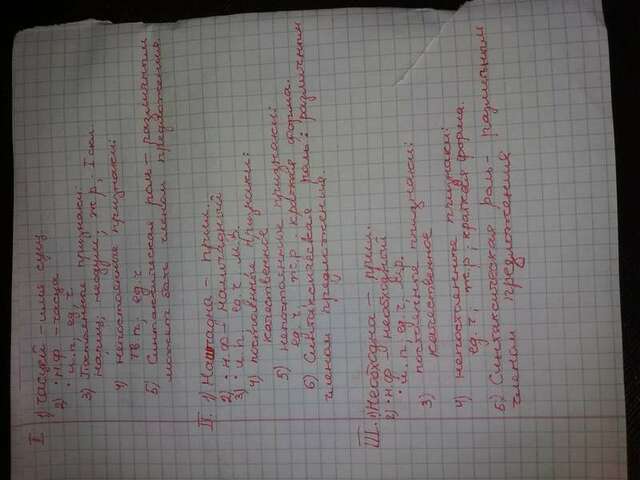 I. 1) Часцой – имя сущ.
2) • н.ф. – часца
• и.п., ед.ч.
3) Постоянные признаки:
нариц; неодуш; ж.р; I скл.
4) непостоянные признаки:
Тв.п; ед.ч
5) Синтаксическая роль – различным
может быть членом предложения.
II. 1) На – прил.
2) • н.ф –
3) • и.п. ед.ч м.р.
4) постоянные признаки:
качественное
5) непостоянные признаки:
ед.ч, ж.р краткая форма.
6) Синтаксическая роль: различным
членом предложения.
III. 1) Необходима – прил.
2) • н.ф необходимой
• и.п; ед.ч; м.р.
3) постоянные признаки:
качественное
4) непостоянные признаки:
ед.ч; ж.р; краткая форма.
5) Синтаксическая роль – различным
членом предложения